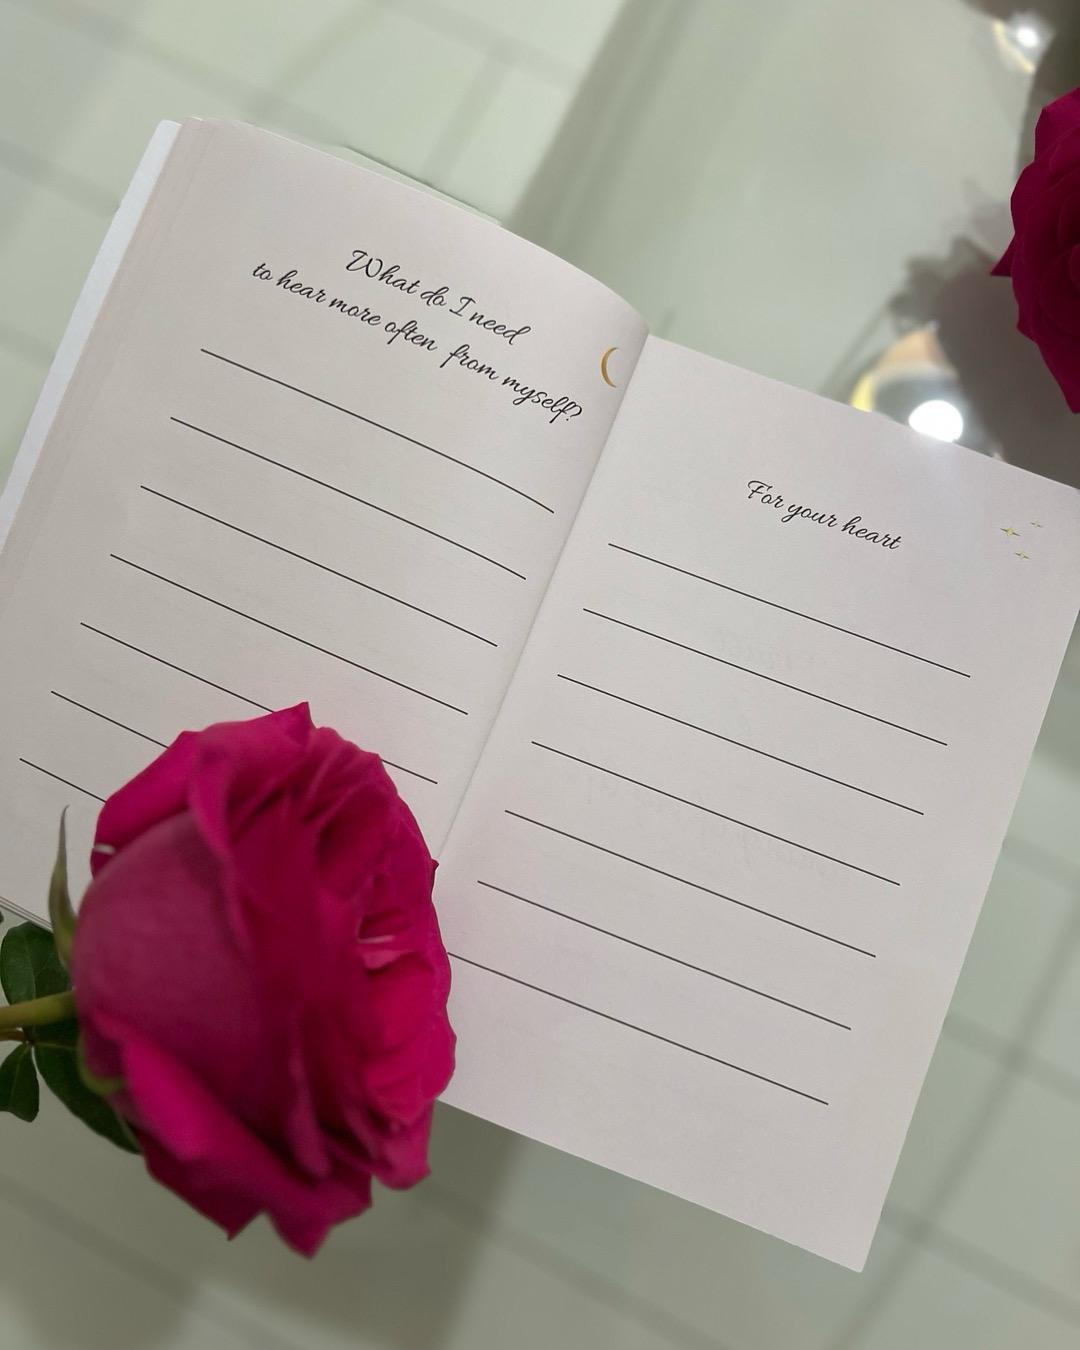 What do I need
to hear more often from myself?
For your heart